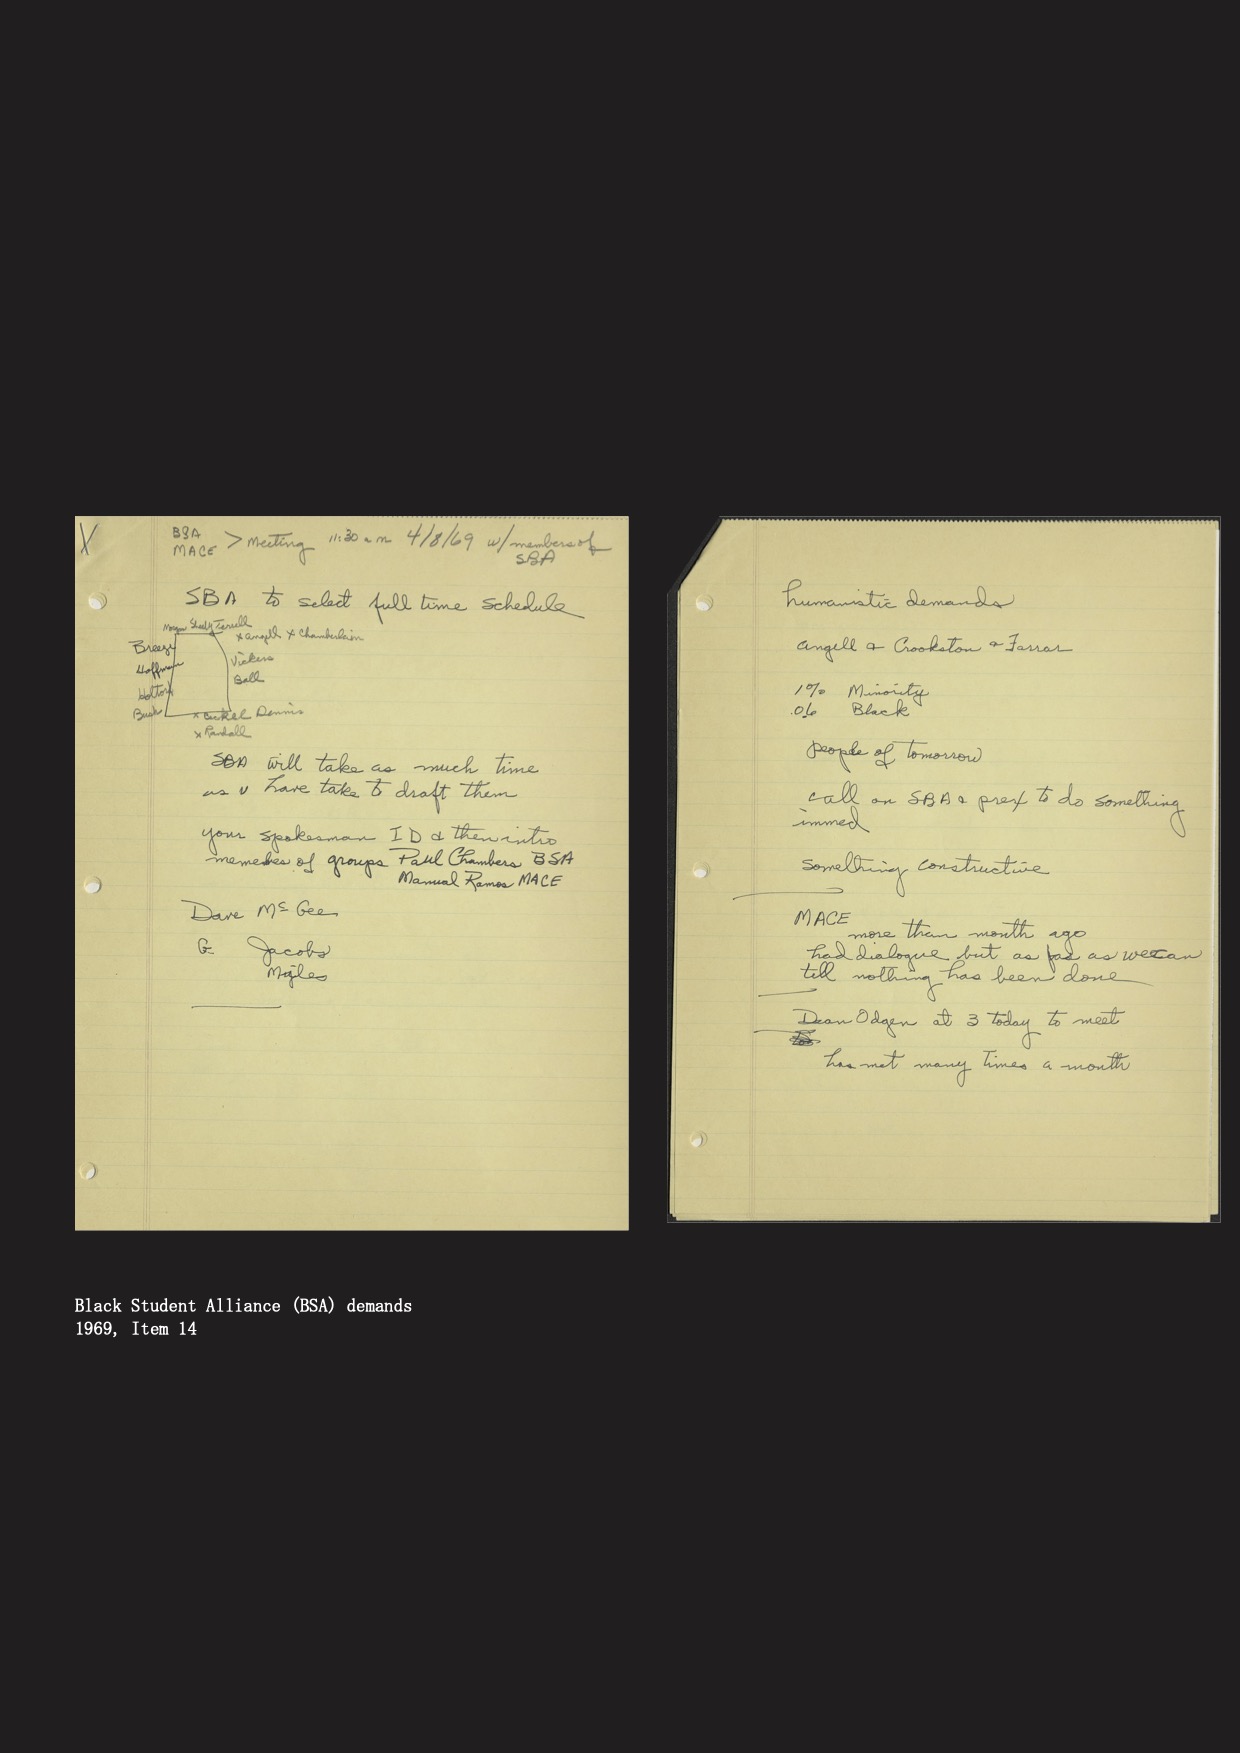 X
BSA
MACE > Meeting 11:30 am 4/8/69 w/members of
SBA
SBA to select full time schedule
Morgan Terrell
x Angell x Chamberlain
Breeze
Hoffman
Vickers
Ball
Holton
Bush
x Dennis
x Randall
SBA will take as much time
as U have take to draft them
your spokesman ID & then intro
memebes of groups Paul Chambers BSA
Manual Ramos MACE
Dave McGee
G Jacobs
humanistic demands
Angell & Crookston & Farrar
1% Minority
.06 Black
people of tomorrow
call on SBA & prex to do something
immed
something constructive
MACE
more than month ago
had dialogue but as far as we can
tell nothing has been done
Dean Odgen at 3 today to meet
has met many times a month
Black Student Alliance (BSA) demands
1969, Item 14